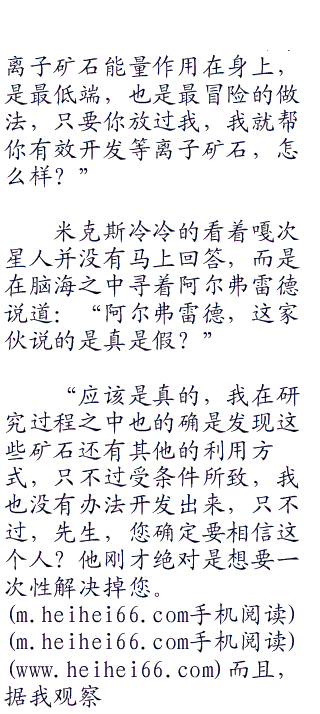 离子矿石能量作用在身上，
是最低端，也是最冒险的做
法，只要你放过我，我就帮
你有效开发等离子矿石，怎
么样？”
米克斯冷冷的看着嘎次
星人并没有马上回答，而是
在脑海之中寻着阿尔弗雷德
说道：“阿尔弗雷德，这家
伙说的是真是假？”
“应该是真的，我在研
究过程之中也的确是发现这
些矿石还有其他的利用方
式，只不过受条件所致，我
也没有办法开发出来，只不
过，先生，您确定要相信这
个人？他刚才绝对是想要一
次性解决掉您。
(m.heihei66.com手机阅读)
(m.heihei66.com手机阅读)
(www.heihei66.com)而且，
据我观察